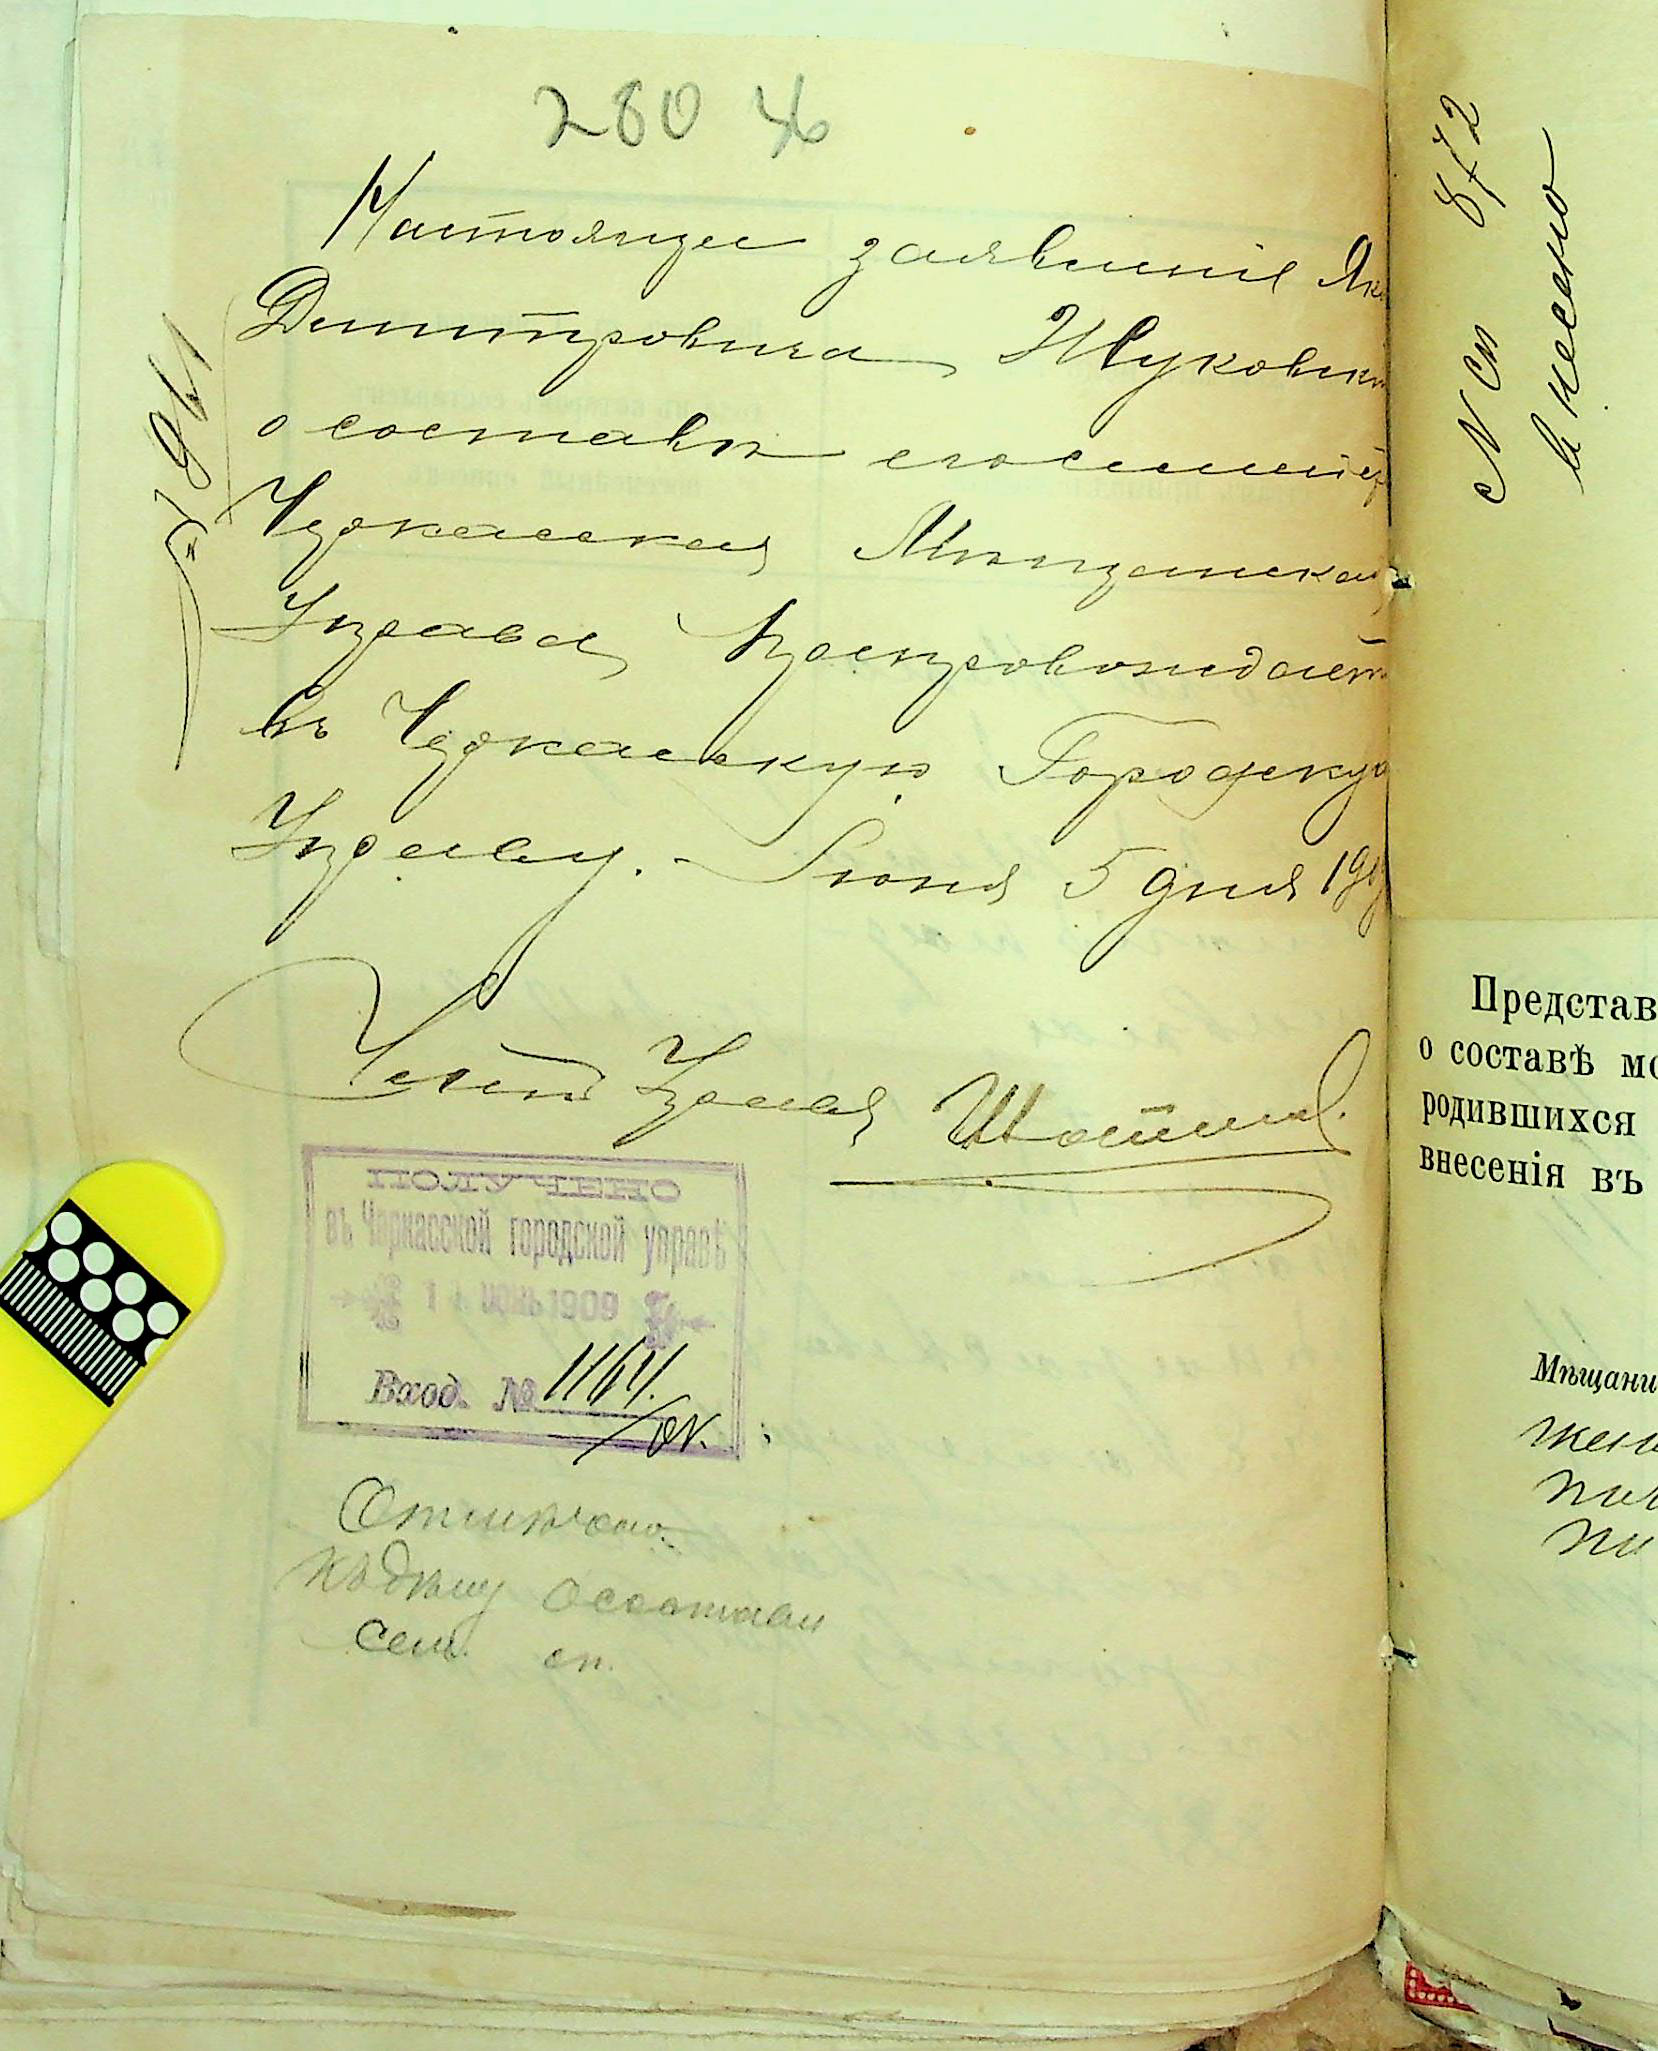 280 Ж
Настоящее заявленіе Як
Дмитровича Жуковск
о составѣ его семьи
Черкасская Мѣщанская
Управа препровождаетъ
въ Черкасскую Городскую
Управу. Іюня 5 дня 1909
Членъ Управы
ПОЛУЧЕНО
въ Черкасской городской управѣ
1 ИЮНЬ 1909
Вход. № 1164
Отмѣчено
сем. сп.
№ сп 872
внесено
Представ
о составѣ мо
родившихся
внесенія въ
Мѣщани
жени